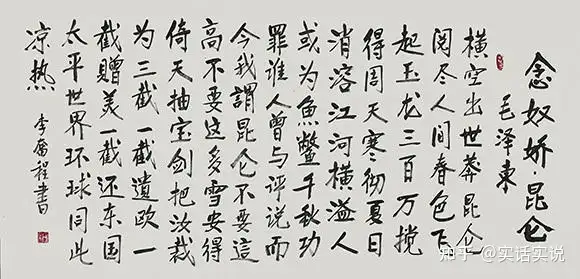 念奴娇·昆仑
毛泽東
横空出世莽昆仑
阅尽人间春色飞
起玉龙三百万搅
得周天寒彻夏日
消溶江河横溢人
或为魚鳖千秋功
罪谁人曾与评说而
今我謂昆仑不要這
高不要这多雪安得
倚天抽宝剑把汝裁
为三截一截遗欧一
截赠美一截还东国
太平世界环球同此
凉热
李奮程書
知乎 @实话实说